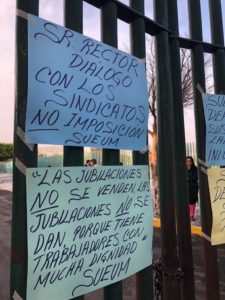 SR. RECTOR
DIALOGO
CON LOS
SINDICATOS
NO IMPOSICION
SUEUM
"LAS JUBILACIONES
NO SE VENDEN, LAS
JUBILACIONES NO SE
DAN, PORQUE TIENE
TRABAJADORES CON
MUCHA DIGNIDAD"
SUEUM